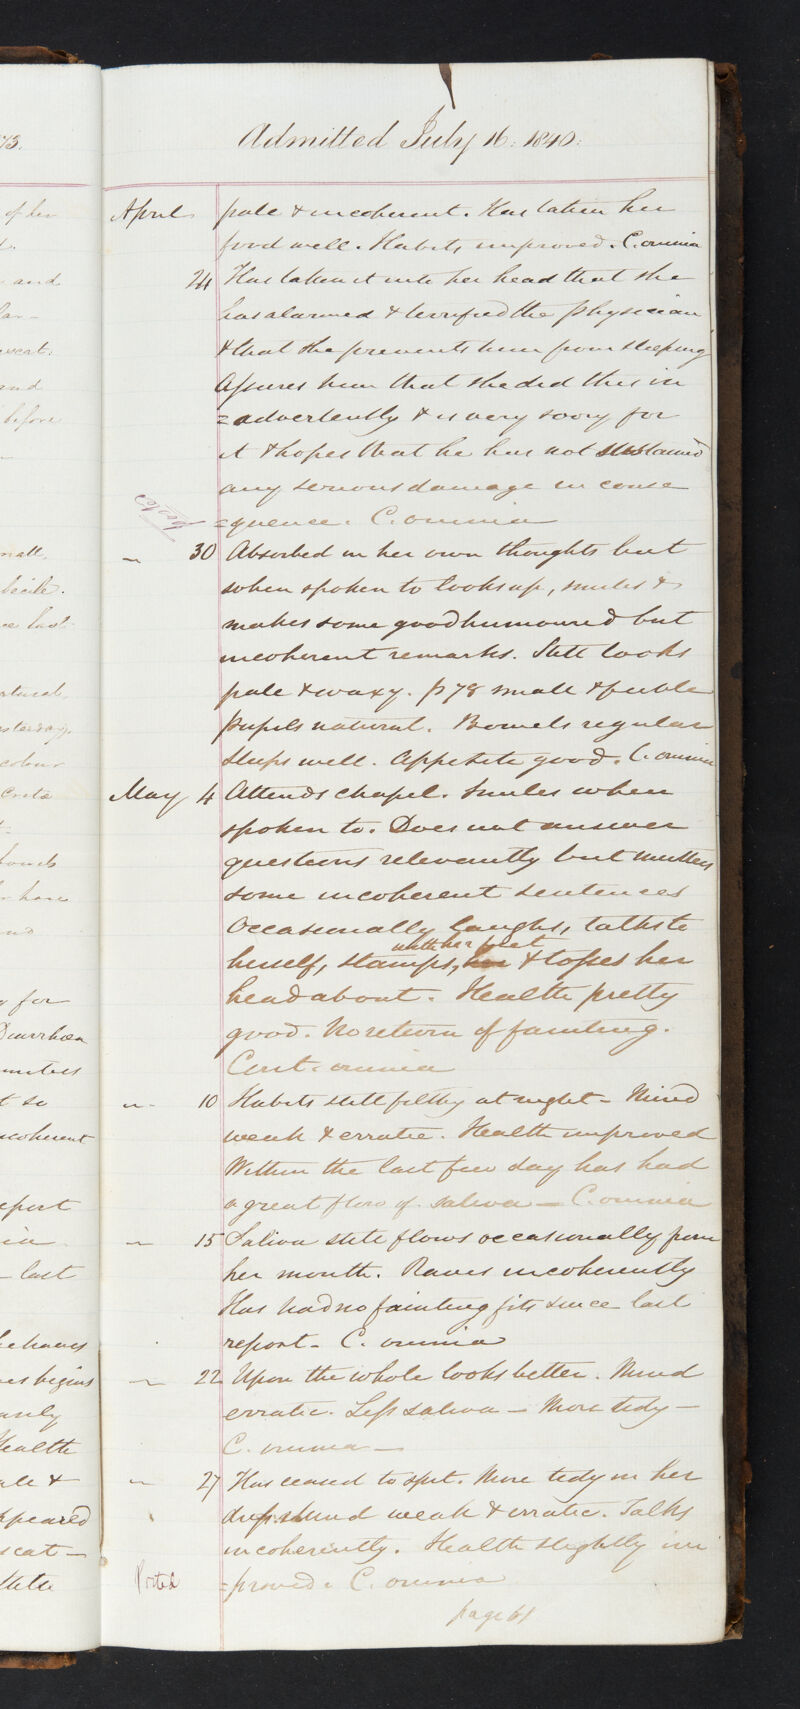 Admitted July 16: 1840:
April pale & incoherent. Has taken her
food well. Habits improved. C. omnia
24 Has taken it into her head that she
has alarmed & terrified the physician
& that she prevents him from sleeping
Assures him that she did this in
=advertently & is very sorry for
it & hopes that he has not sustained
any serious damage in conse
Posted
=quence. C. omnia
" 30 Absorbed in her own thoughts but
when spoken to looks up, smiles &
makes some good humoured but
incoherent remarks. Still looks
pale & waxy. P 78 small & feeble
Pupils natural. Bowels regular
Sleeps well. Appetite good. C. omnia
May 4 Attends chapel. Smiles when
spoken to. Does not answer
questions relevantly but mutters
some incoherent sentences
Occasionally laughs, talks to
with her feet
herself, stamps, & tosses her
head about. Health pretty
good. No return of fainting.
Cont. omnia
" 10 Habits still filthy at night - Mind
weak & erratic. Health improved
Within the last few day has had
a great flow of saliva - C. omnia
" 15 Saliva still flows occasionally from
her mouth. Raves incoherently
Has had no fainting fits since last
report - C. omnia
" 22 Upon the whole looks better. Mind
erratic. Less saliva - More tidy -
C. omnia -
" 27 Has ceased to spit. More tidy in her
dress. Mind weak & erratic. Talks
incoherently. Health slightly im
Posted =proved. C. omnia
page 61
73.
of her
and
before
small
last
yesterday.
colour
Creta
have
and
for
Diarrhoea
mutters
t so
incoherent
report
last
behaves
begins
Health
pale &
appeared
scat -